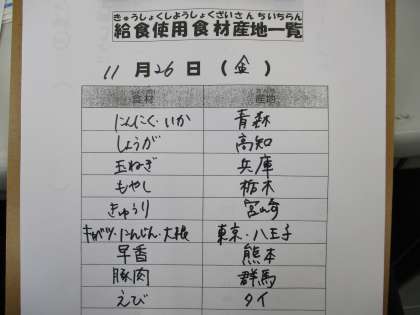 きゅうしょくしようしょくざいさんちいちらん
給食使用食材産地一覧
11月26日(金)
食材 産地
にんにく・いか 青森
しょうが 高知
玉ねぎ 兵庫
もやし 栃木
きゅうり 宮崎
キャベツ・にんじん・大根 東京・八王子
早香 熊本
豚肉 群馬
えび タイ